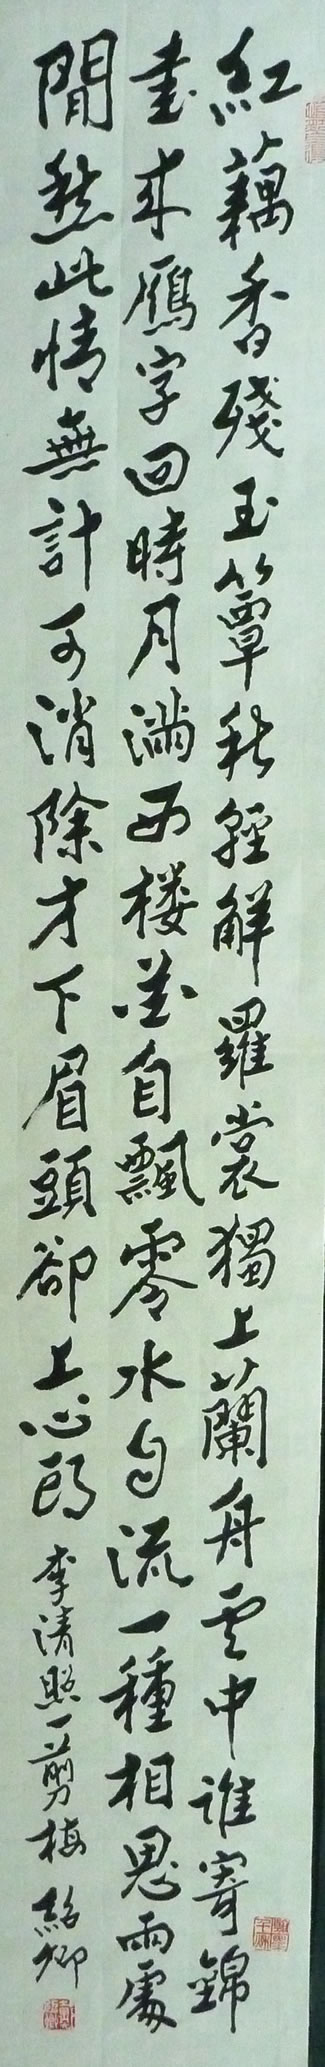 紅藕香殘玉簟秋輕解羅裳獨上蘭舟雲中誰寄錦
書來雁字回時月滿西楼花自飄零水自流一種相思兩處
閒愁此情無計可消除才下眉頭卻上心頭 李清照一剪梅